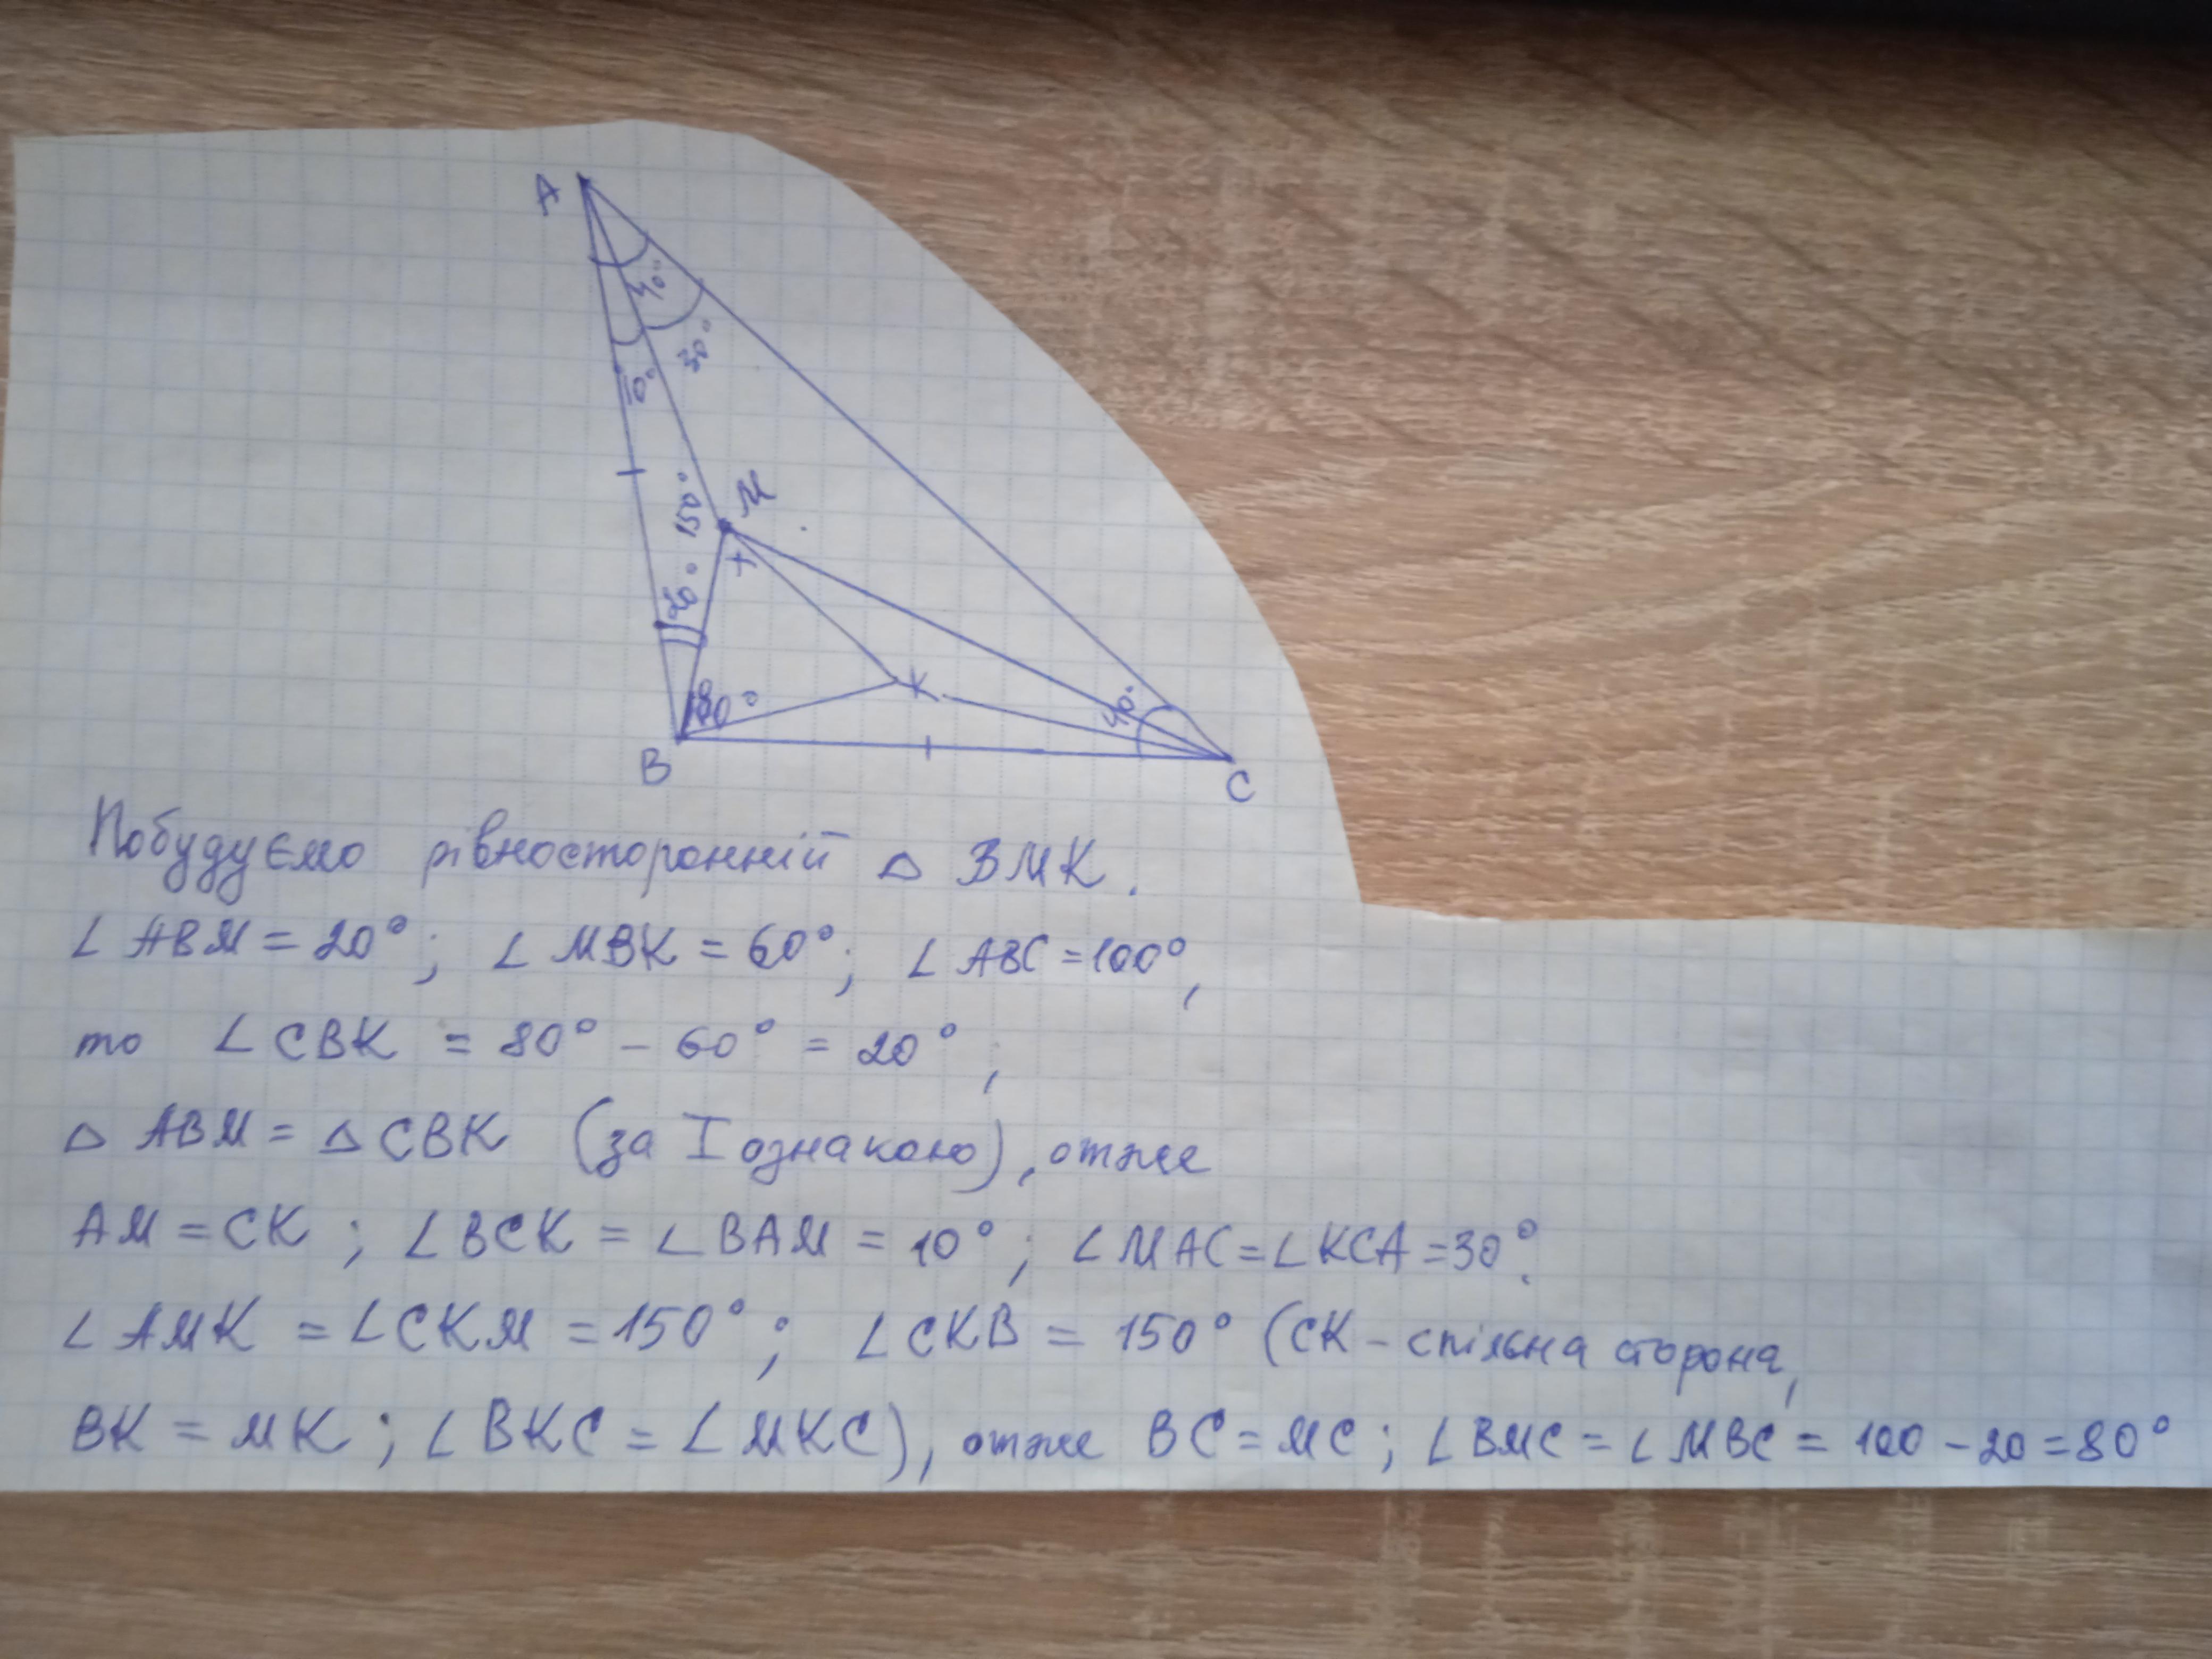 A
40°
30°
10°
150°
M
20°
80°
K
40°
B
C
Побудуємо рівносторонній △ BMK.
∠ ABM = 20°; ∠ MBK = 60°; ∠ ABC = 100°,
то ∠ CBK = 80° - 60° = 20°;
△ ABM = △ CBK (за I ознакою), отже
AM = CK; ∠ BCK = ∠ BAM = 10°; ∠ MAC = ∠ KCA = 30°.
∠ AMK = ∠ CKM = 150°; ∠ CKB = 150° (CK - спільна сторона,
BK = MK; ∠ BKC = ∠ MKC), отже BC = MC; ∠ BMC = ∠ MBC = 100 - 20 = 80°